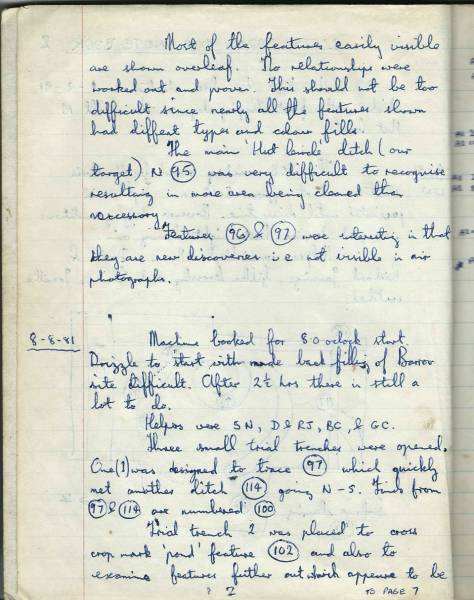 Most of the features easily visible
are shown overleaf. No relationships were
worked out and proven. This should not be too
difficult since nearly all the features shown
had diffent types and colour fills.
The main 'Hut circle' ditch (our
target) N 95 was very difficult to recognise
resulting in more area being cleared than
necessary
Features 96 & 97 were interesting in that
they are new discoveries i.e not visible in air
photographs.
8-8-81 Machine booked for 8 oclock start.
Drizzle to start with made back filling of Barrow
site difficult. After 2½ hrs there is still a
lot to do.
Helpers were SN, D & RJ, BC, & GC.
Three small trial trenches were opened.
One (1) was designed to trace 97 which quickly
met another ditch 114 going N-S. Finds from
97 & 114 are numbered 100
Trial trench 2 was placed to cross
crop mark 'pond' feature 102 and also to
examine features further out which appear to be
TO PAGE 7